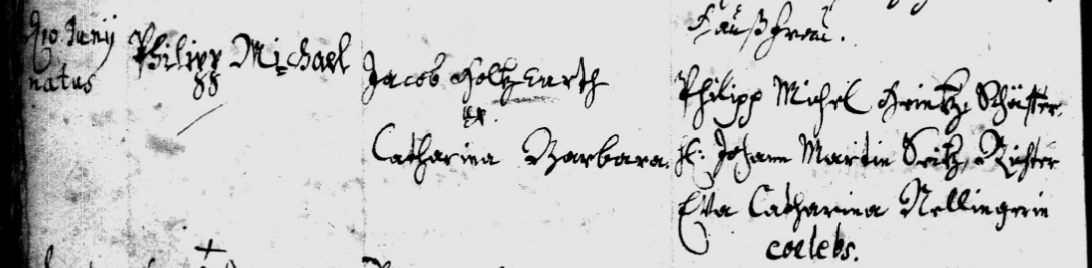 Haußfrau.
10. Junij
natus
Philipp Michael
Jacob Holtzwarth
ux.
Catharina Barbara.
Philipp Michel Heintz, Schäffer.
H: Johann Martin Seitz, Richter
Eva Catharina Nellingerin
coelebs.